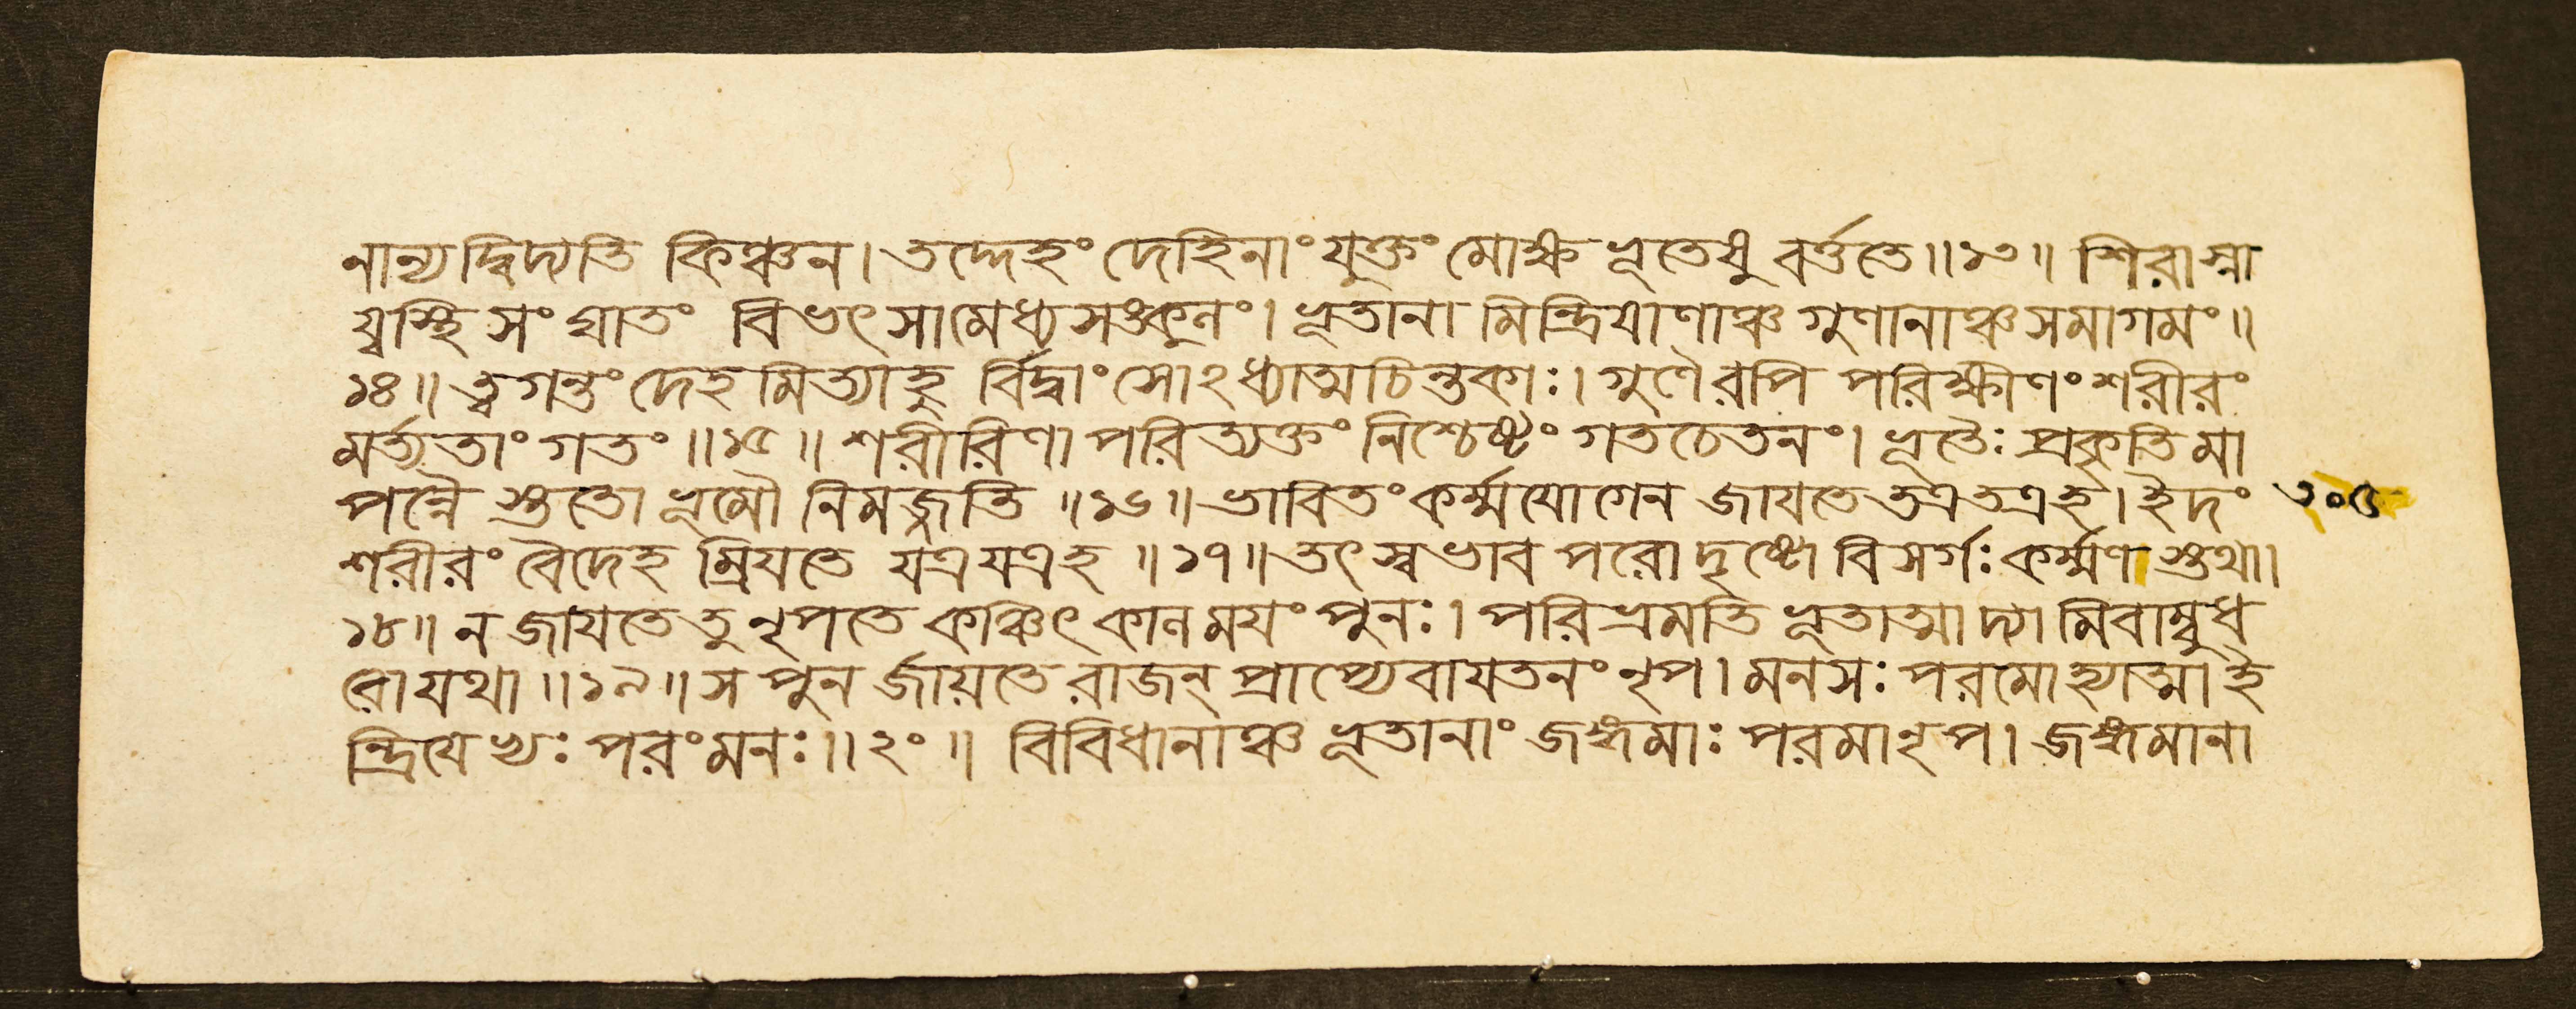 নান্যদ্বিদ্যতি কিঞ্চন। তদ্দেহং দেহিনাং যুক্তং মোক্ষ ভূতেষু বর্ত্ততে॥১৩॥ শিরাস্না
য়্বস্থি সংঘাতং বিভৎসামেধ্য সঙ্কুলং। ভূতানা মিন্দ্রিয়াণাঞ্চ গুণানাঞ্চ সমাগমং॥
১৪॥ ত্বগন্তং দেহ মিত্যাহু র্বিদ্বাংসোঽধ্যাত্মচিন্তকাঃ। গুণৈরপি পরিক্ষীণং শরীরং
মর্ত্যতাং গতং॥১৫॥ শরীরিণা পরিত্যক্তং নিশ্চেষ্টং গতচেতনং। ভূতৈঃ প্রকৃতিমা
পন্নৈ স্তুতো ভূমৌ নিমজ্জতি॥১৬॥ ভাবিতং কর্ম্মযোগেন জায়তে তত্র তত্রহ। ইদং
৩০৫
শরীরং বৈদেহ ম্রিয়তে যত্র যত্রহ॥১৭॥ তৎ স্বভাব পরো দৃষ্টো বিসর্গঃ কর্ম্মণ স্তথা।
১৮॥ ন জায়তে তু নৃপতে কঞ্চিৎ কালময়ং পুনঃ। পরিভ্রমতি ভূতাত্মা দ্যা মিবাম্বুধ
রো যথা॥১৯॥ স পুন র্জায়তে রাজন্ প্রাপ্যেবায়তনং নৃপ। মনসঃ পরমোহ্যাত্মা ই
ন্দ্রিয়েভ্যঃ পরং মনঃ॥২০॥ বিবিধানাঞ্চ ভূতানাং জঙ্গমাঃ পরমা নৃপ। জঙ্গমানা